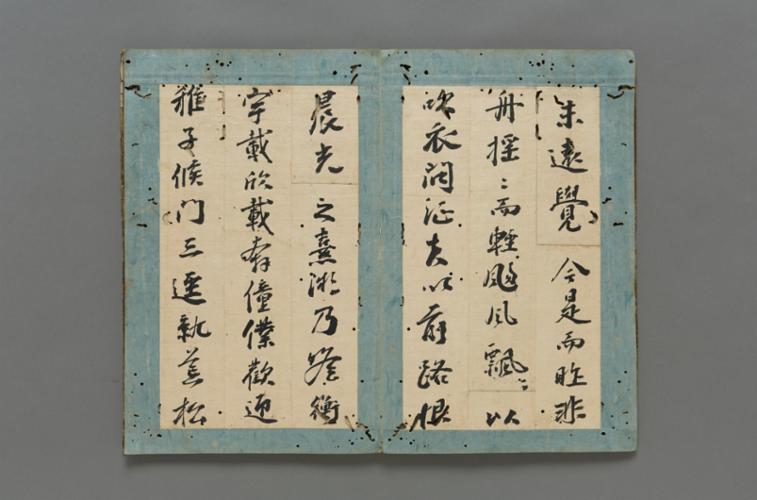 未遠覺今是而昨非
舟揺〻而輕颺風飄〻以
吹衣問征夫以前路恨
晨光之熹微乃瞻衡
宇載欣載奔僮僕歡迎
稚子候門三逕就荒松